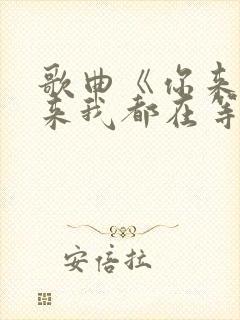 歌曲《你来
来我都在等
安倍拉